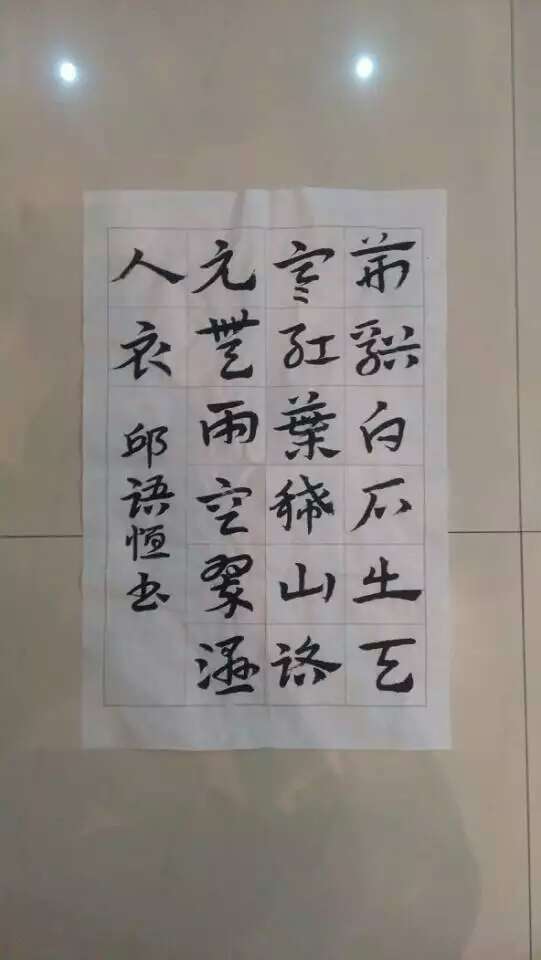 荊谿白石出天
寒紅葉稀山路
元無雨空翠濕
人衣
邱語恒书